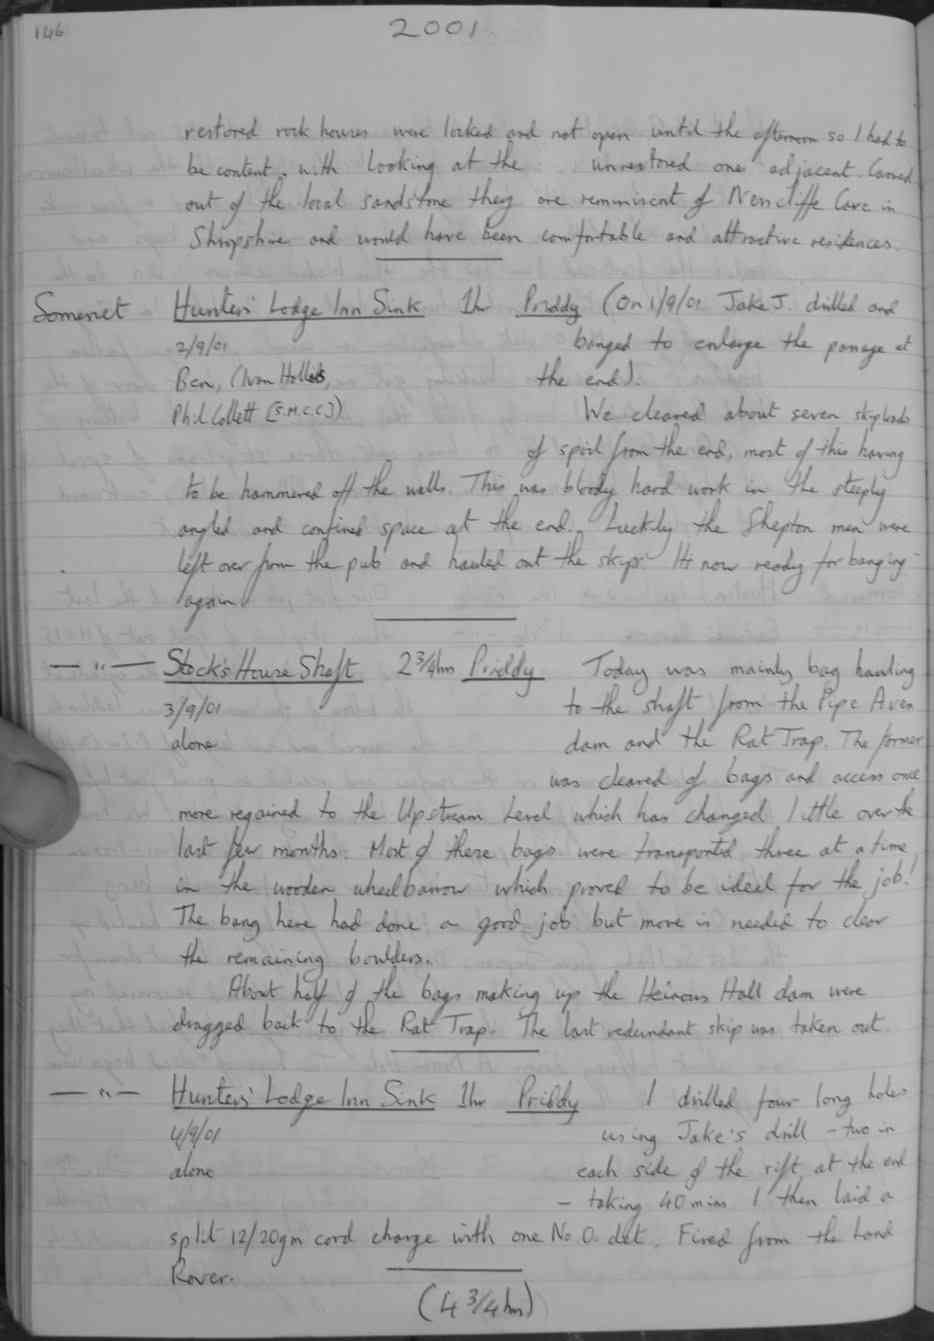 146
2001
restored rock houses were locked and not open until the afternoon so I had to
be content with looking at the unrestored one adjacent. Carved
out of the local sandstone they are reminiscent of Nesscliffe Cave in
Shropshire and would have been comfortable and attractive residences.
Somerset Hunters' Lodge Inn Sink 1hr Priddy (On 1/9/01 Jake J. drilled and
2/9/01 banged to enlarge the passage at
Ben, (Ivan Hollis, the end).
Phil Collett [S.M.C.C.]) We cleared about seven skiploads
of spoil from the end, most of this having
to be hammered off the walls. This was bloody hard work in the steeply
angled and confined space at the end. Luckily the Shepton men were
left over from the pub and hauled out the skips. It's now ready for banging
again.
— " — Stock's House Shaft 2 3/4hrs Priddy Today was mainly bag hauling
3/9/01 to the shaft from the Pipe Aven
alone dam and the Rat Trap. The former
was cleared of bags and access once
more regained to the Upstream Level which has changed little over the
last few months. Most of these bags were transported three at a time
in the wooden wheelbarrow which proved to be ideal for the job!
The bang here had done a good job but more is needed to clear
the remaining boulders.
About half of the bags making up the Heinous Hall dam were
dragged back to the Rat Trap. The last redundant skip was taken out.
— " — Hunters' Lodge Inn Sink 1hr Priddy I drilled four long holes
4/9/01 using Jake's drill - two in
alone each side of the rift at the end
- taking 40 mins. I then laid a
split 12/20gm cord charge with one No. 0. det. Fired from the Land
Rover.
(4 3/4 hrs)